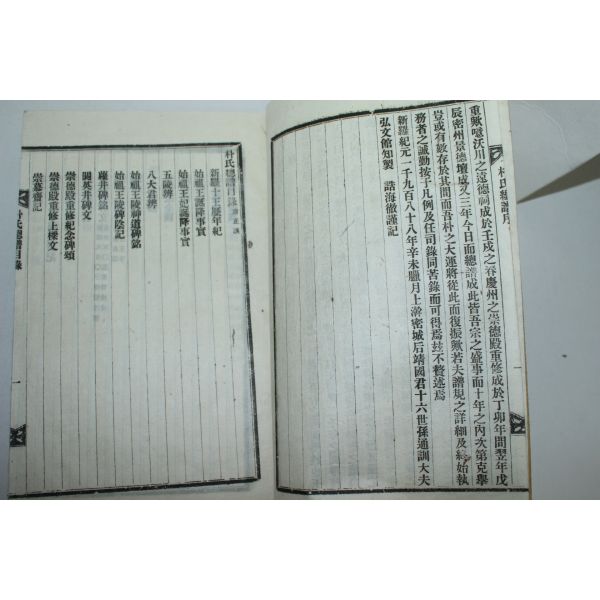 朴氏總譜序
重歟噫沃川之遠德祠成於壬戌之春慶州之崇德殿重修成於丁卯年間翌年戊
辰密州景德壇成又三年今日而總譜成此皆吾宗之盛事而十年之內次第克擧
豈或有數存於其間而吾朴之大運將從此而復振歟若夫譜規之詳細及終始執
務者之誠勤按于凡例及任司錄同苦錄而可得焉玆不贅述焉
新羅紀元一千九百八十八年辛未臘月上澣密城后靖國君十六世孫通訓大夫
弘文館知製 誥海徹謹記
一
朴氏總譜目錄
新羅十王歷年紀
始祖王誕降事實
始祖王妃誕降事實
五陵辨
八大君辨
始祖王陵神道碑銘
始祖王陵碑陰記
蘿井碑銘
閼英井碑文
崇德殿重修紀念碑頌
崇德殿重修上樑文
崇慕齋記
朴氏總譜目錄
一